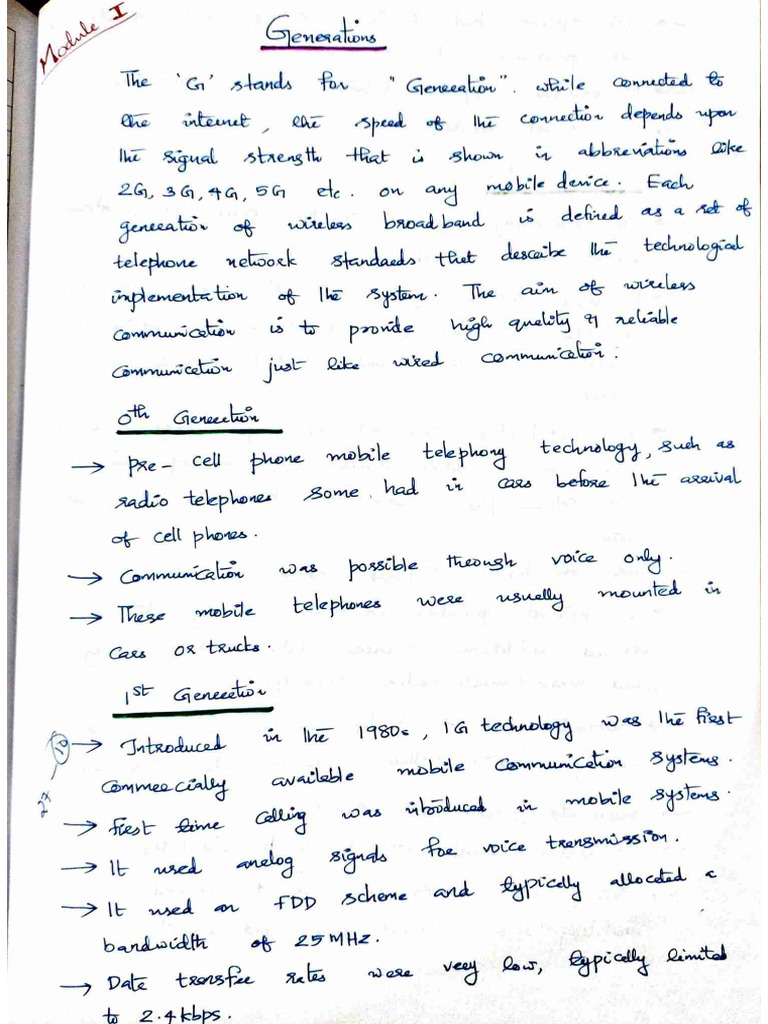 Module I
Generations
The 'G' stands for "Generation". while connected to
the internet, the speed of the connection depends upon
the signal strength that is shown in abbreviations like
2G, 3G, 4G, 5G etc. on any mobile device. Each
generation of wireless broadband is defined as a set of
telephone network standards that describe the technological
implementation of the system. The aim of wireless
communication is to provide high quality & reliable
communication just like wired communication.
0th Generation
→ Pre-cell phone mobile telephony technology, such as
radio telephones some had in cars before the arrival
of cell phones.
→ Communication was possible through voice only.
→ These mobile telephones were usually mounted in
cars or trucks.
1st Generation
→ Introduced in the 1980s, 1G technology was the first
commercially available mobile communication systems.
→ First time calling was introduced in mobile systems.
→ It used analog signals for voice transmission.
→ It used an FDD scheme and typically allocated a
bandwidth of 25 MHz.
→ Data transfer rates were very low, typically limited
to 2.4 kbps.